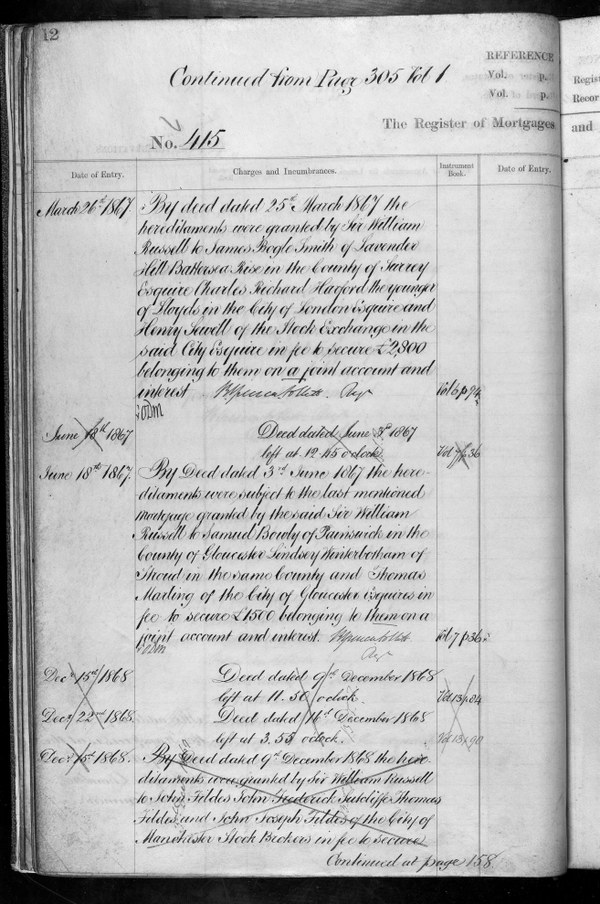 12
REFERENCE
Continued from Page 305 Vol 1
Vol. p.
Vol. p.
Regist
Recor
The Register of Mortgages
and
No. 415
Date of Entry.
Charges and Incumbrances.
Instrument Book.
Date of Entry.
March 26th 1867
By deed dated 25th March 1867 the
hereditaments were granted by Sir William
Russell to James Bogle Smith of Lavender
Hill Battersea Rise in the County of Surrey
Esquire Charles Richard Harford the younger
of Lloyds in the City of London Esquire and
Henry Sewell of the Stock Exchange in the
said City Esquire in fee to secure £2,800
belonging to them on a joint account and
interest Regr Vol 6 p 94
June 18th 1867
Deed dated June 3d 1867
left at 12.45 o'clock Vol 7 p 36
June 18th 1867.
By Deed dated 3rd June 1867 the here-
ditaments were subject to the last mentioned
Mortgage granted by the said Sir William
Russell to Samuel Bowly of Painswick in the
County of Gloucester Lindsey Winterbotham of
Stroud in the same County and Thomas
Marling of the City of Gloucester Esquires in
fee to secure £1500 belonging to them on a
joint account and interest. Vol 7 p 36
Regr
Decr 15th 1868
Deed dated 9th December 1868
left at 11.50 o'clock. Vol 13 p 84
Decr 22nd 1868.
Deed dated 16th December 1868
left at 3.55 o'clock. Vol 13 p 90
Decr 15th 1868.
By Deed dated 9th December 1868 the here-
ditaments were granted by Sir William Russell
to John Fildes John Frederick Sutcliffe Thomas
Fildes and John Joseph Fildes of the City of
Manchester Stock Brokers in fee to secure
Continued at page 158